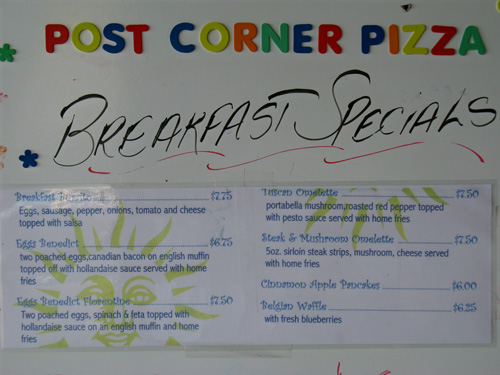 POST CORNER PIZZA
BREAKFAST SPECIALS
Breakfast Burrito $7.75
Eggs, sausage, pepper, onions, tomato and cheese
topped with salsa
Eggs Benedict $6.75
two poached eggs,canadian bacon on english muffin
topped off with hollandaise sauce served with home
fries
Eggs Benedict Florentine $7.50
Two poached eggs, spinach & feta topped with
hollandaise sauce on an english muffin and home
fries
Tuscan Omelette $7.50
portabella mushroom,roasted red pepper topped
with pesto sauce served with home fries
Steak & Mushroom Omelette $7.50
5oz. sirloin steak strips, mushroom, cheese served
with home fries
Cinnamon Apple Pancakes $6.00
Belgian Waffle $6.25
with fresh blueberries